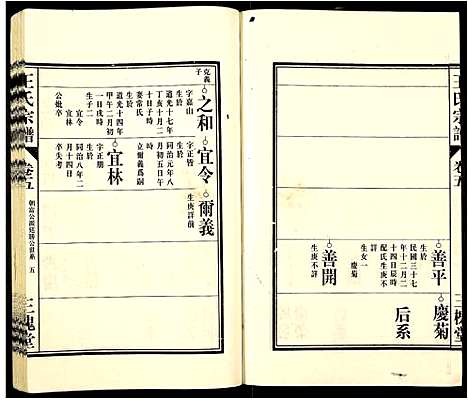 王氏宗譜
卷五
三槐堂
善平
生於
民國三十七
年十二月二
十四日辰時
配氏生庚不
詳
生女一
慶菊
慶菊
后系
善開
生庚不詳
克義
子
之和
字嘉山
生於
道光十七年
丁亥十月二
十日子時
妻常氏
生於
道光十四年
甲午二月初
一日戌時
生子二
宜令
宜林
公妣卒
宜令
字正皆
生於
同治元年八
月初五日午
時
立爾義爲嗣
爾義
生庚詳前
宜林
字正朋
生於
同治八年二
月十四日
卒失考
王氏宗譜
卷五
朝富公派廷勝公世系
五
三槐堂